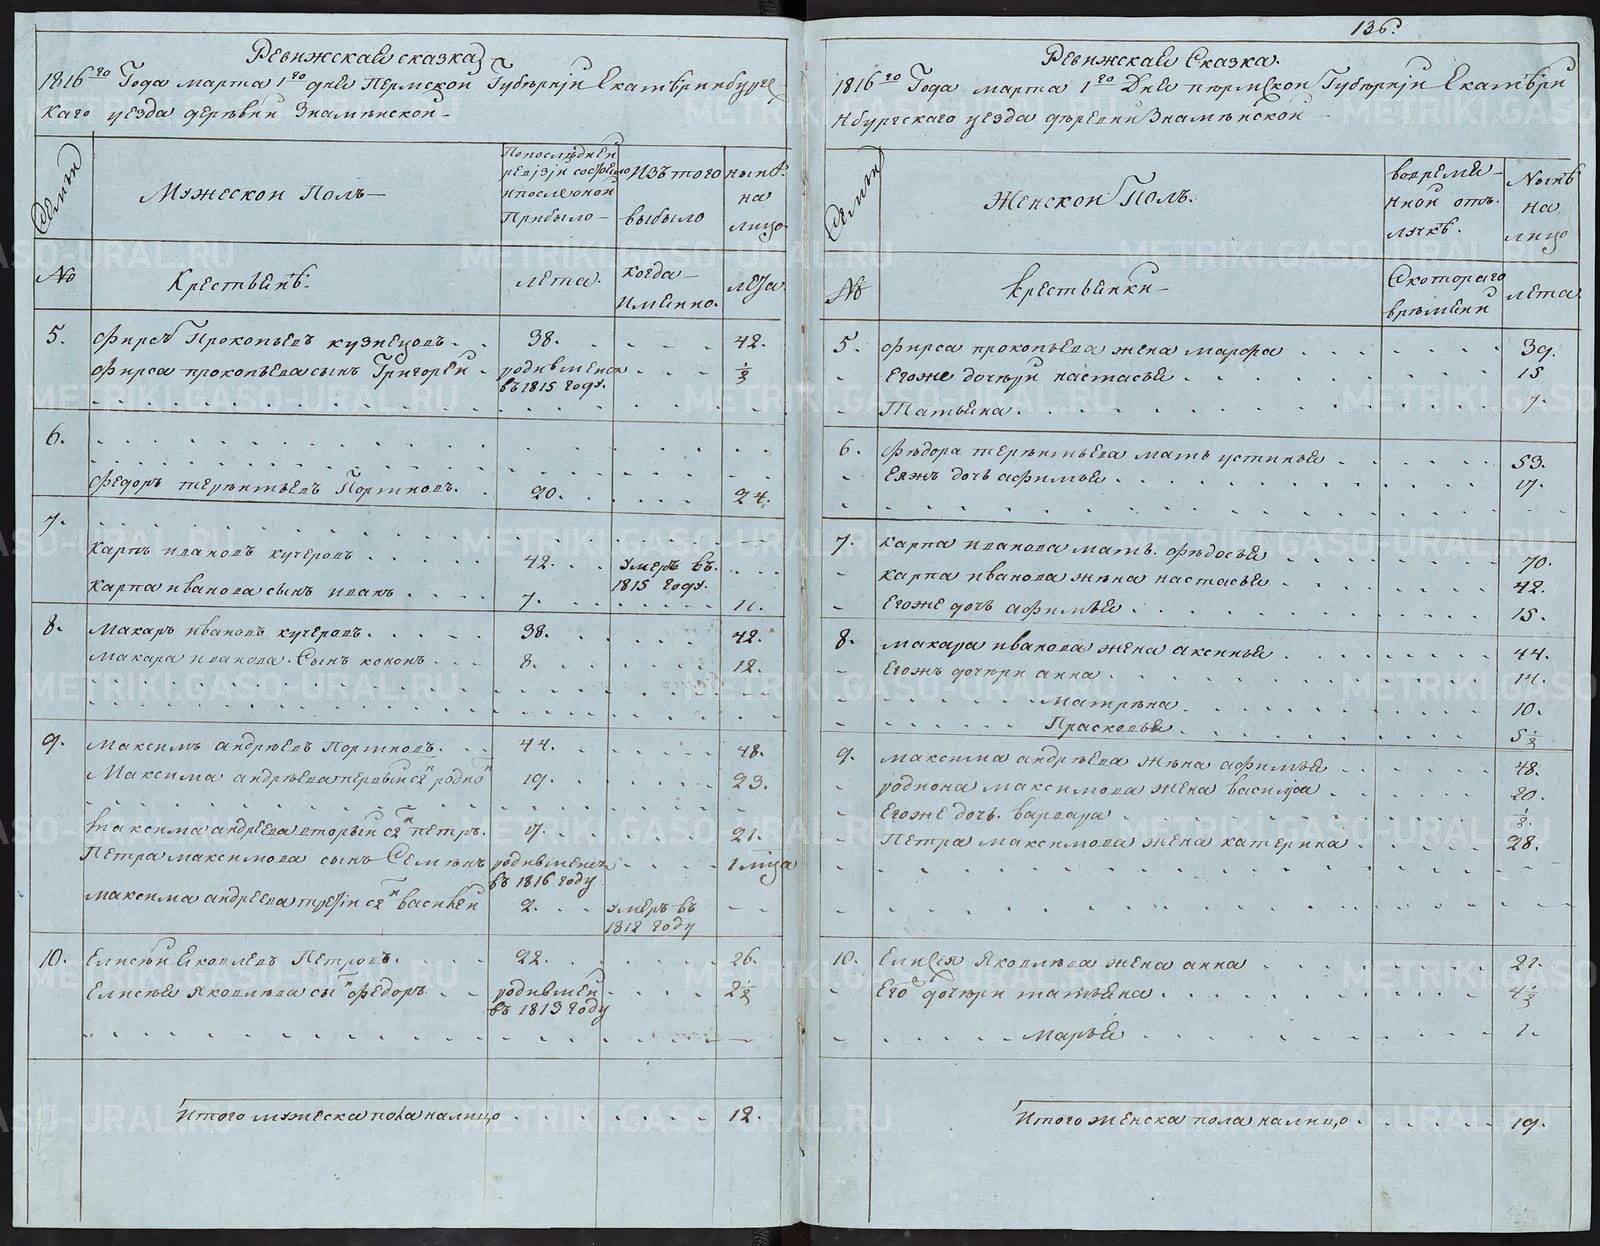 136.
Ревижская сказка
1816го Года марта 1го дня Пермской Губернiи Екатеринбургс
каго уезда деревни Знаменской
Семьи
Мужеской Полъ
По последней
ревiзiи состояло
и после оной
Прибыло
Изъ того
выбыло
ныне
на
лицо
No
Крестьяне.
лета.
когда
имянно.
лета
5. Фирсъ Прокопьевъ кузнецовъ. 38. 42.
Фирса прокопьева сынъ Григорей родившейся 1/2
въ 1815 году.
6.
Федоръ терентьевъ Портновъ. 20. 24.
7.
Карпъ ивановъ кучеровъ 42. умеръ въ
1815 году.
Карпа иванова сынъ иванъ 7. 11.
8. Макаръ ивановъ кучеровъ. 38. 42.
Макара иванова. Сынъ кононъ 8. 12.
9. Максимъ андреевъ Портновъ. 44. 48.
Максима андреева первый сынъ родио 19. 23.
Максима андреева вторый сынъ петръ. 17. 21.
Петра максимова сынъ Семенъ родившейся 1 мца
въ 1816 году
Максима андреева третiй сынъ василей 2. умеръ въ
1812 году
10. Елисей Яковлевъ Петровъ. 22. 26.
Елисея Яковлева сы федоръ родившей 2 1/2
въ 1813 году
Итого мужеска пола налицо 12.
Ревижская Сказка.
1816го Года марта 1го Дня пермской Губернiи Екатери
нбургскаго уезда деревни Знаменской
Семьи
Женской Полъ.
во времян
ной отъ
лучке.
Ныне
на
лицо
No
крестьянки
Скотораго
времяни
лета
5. Фирса прокопьева жена марфа 39.
Егоже дочери настасья 15
Татьяна. 7.
6. Федора терентьева мать устинья 53.
Еяжъ дочь афимья 17.
7. карпа иванова мать. федосья 70.
карпа иванова жена настасья 42.
Егоже дочь афимья 15.
8. макара иванова жена аксинья 44.
Егожъ дочери анна 14.
Матрена 10.
Прасковья 5 1/2
9. максима андреева жена афимья 48.
родиона максимова жена василиса 20.
Егоже дочь. варвара 1/2.
Петра максимова жена катерина 28.
10. Елисея Яковлева жена анна 21.
Его дочери татьяна 4 1/2
Марья 1.
Итого женска пола налицо. 19.
METRIKI.GASO-URAL.RU